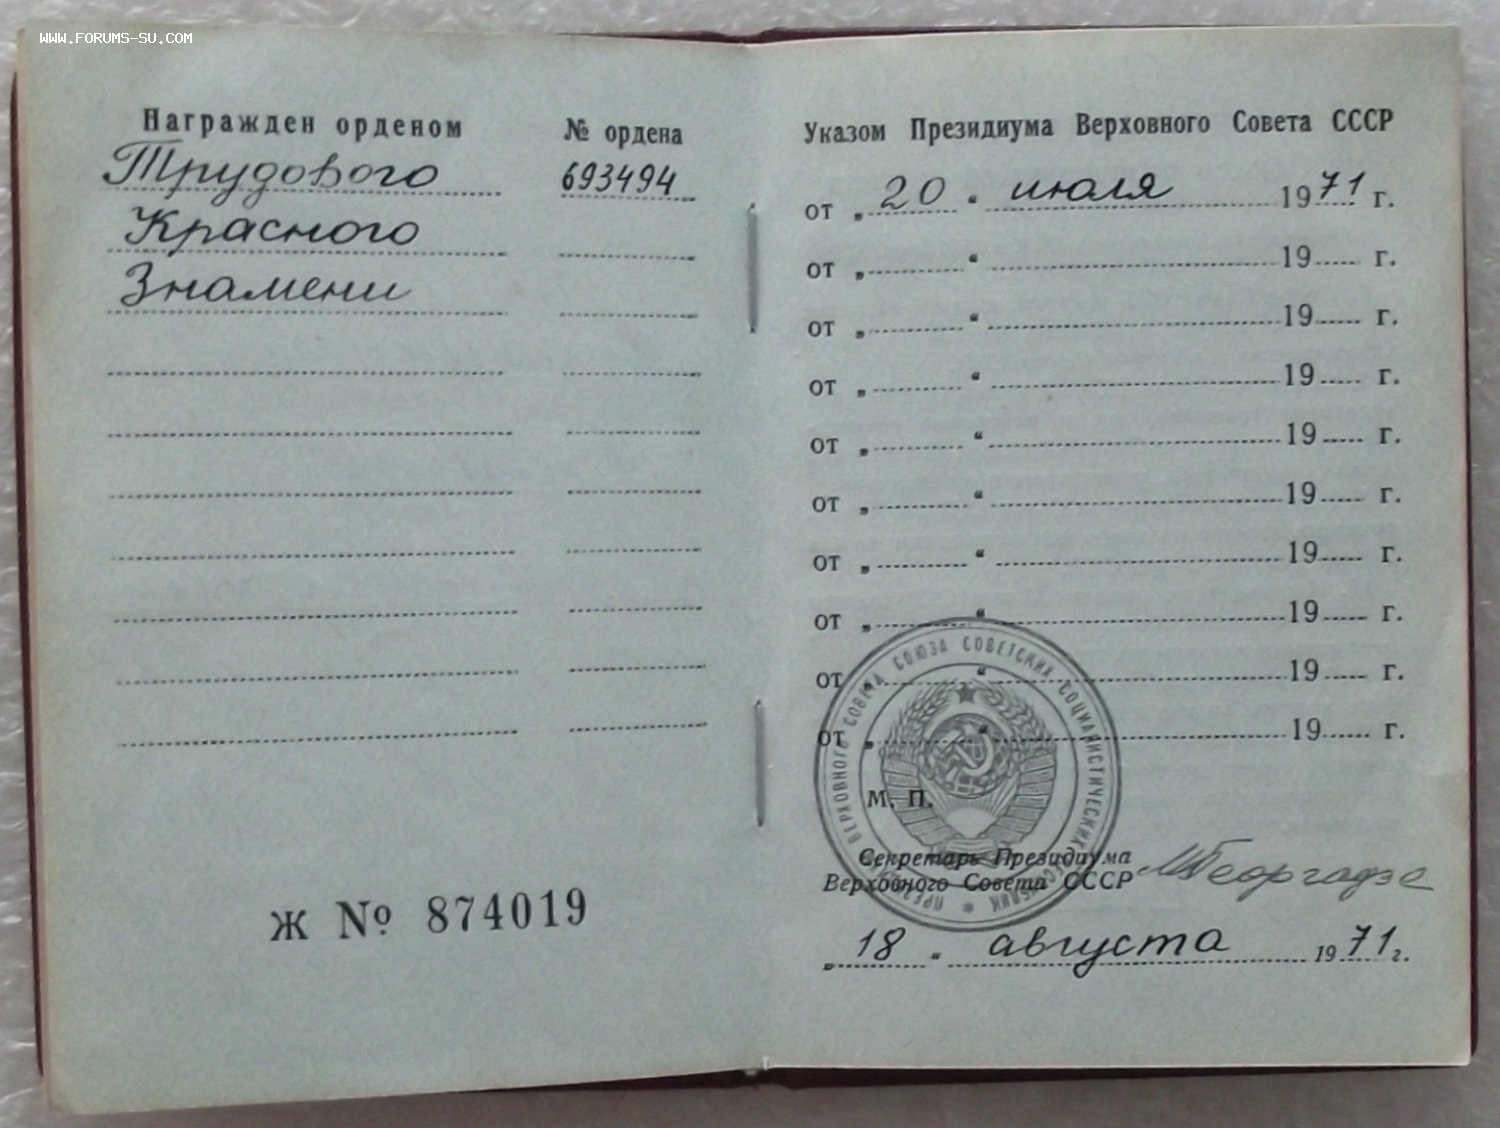 WWW.FORUMS-SU.COM
Награжден орденом № ордена
Трудового 693494
Красного
Знамени
Ж № 874019
Указом Президиума Верховного Совета СССР
от „ 20 “ июля 1971 г.
от „ “ 19 г.
от „ “ 19 г.
от „ “ 19 г.
от „ “ 19 г.
от „ “ 19 г.
от „ “ 19 г.
от „ “ 19 г.
от „ “ 19 г.
от „ “ 19 г.
ПРЕЗИДИУМ ВЕРХОВНОГО СОВЕТА СОЮЗА СОВЕТСКИХ СОЦИАЛИСТИЧЕСКИХ РЕСПУБЛИК *
М. П.
Секретарь Президиума
Верховного Совета СССР МГеоргадзе
„ 18 “ августа 1971 г.